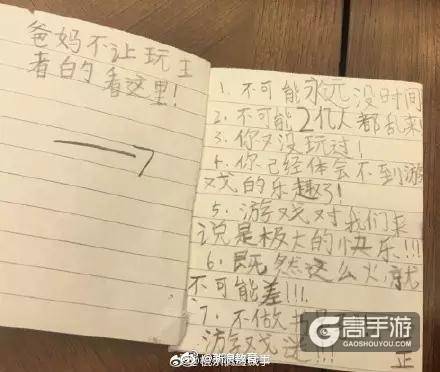 爸妈不让玩王
者白的看这里!
1、不可能永元没时间
2、不可能2亿人都乱来!
3、你又没玩过!
4、你已经体会不到游
戏的乐趣了!
5、游戏对我们来
说是极大的快乐!!!
6、既然这么火就
不可能差!!!
7、不做
游戏迷!!!
正
高手游
GAOSHOUYOU.COM